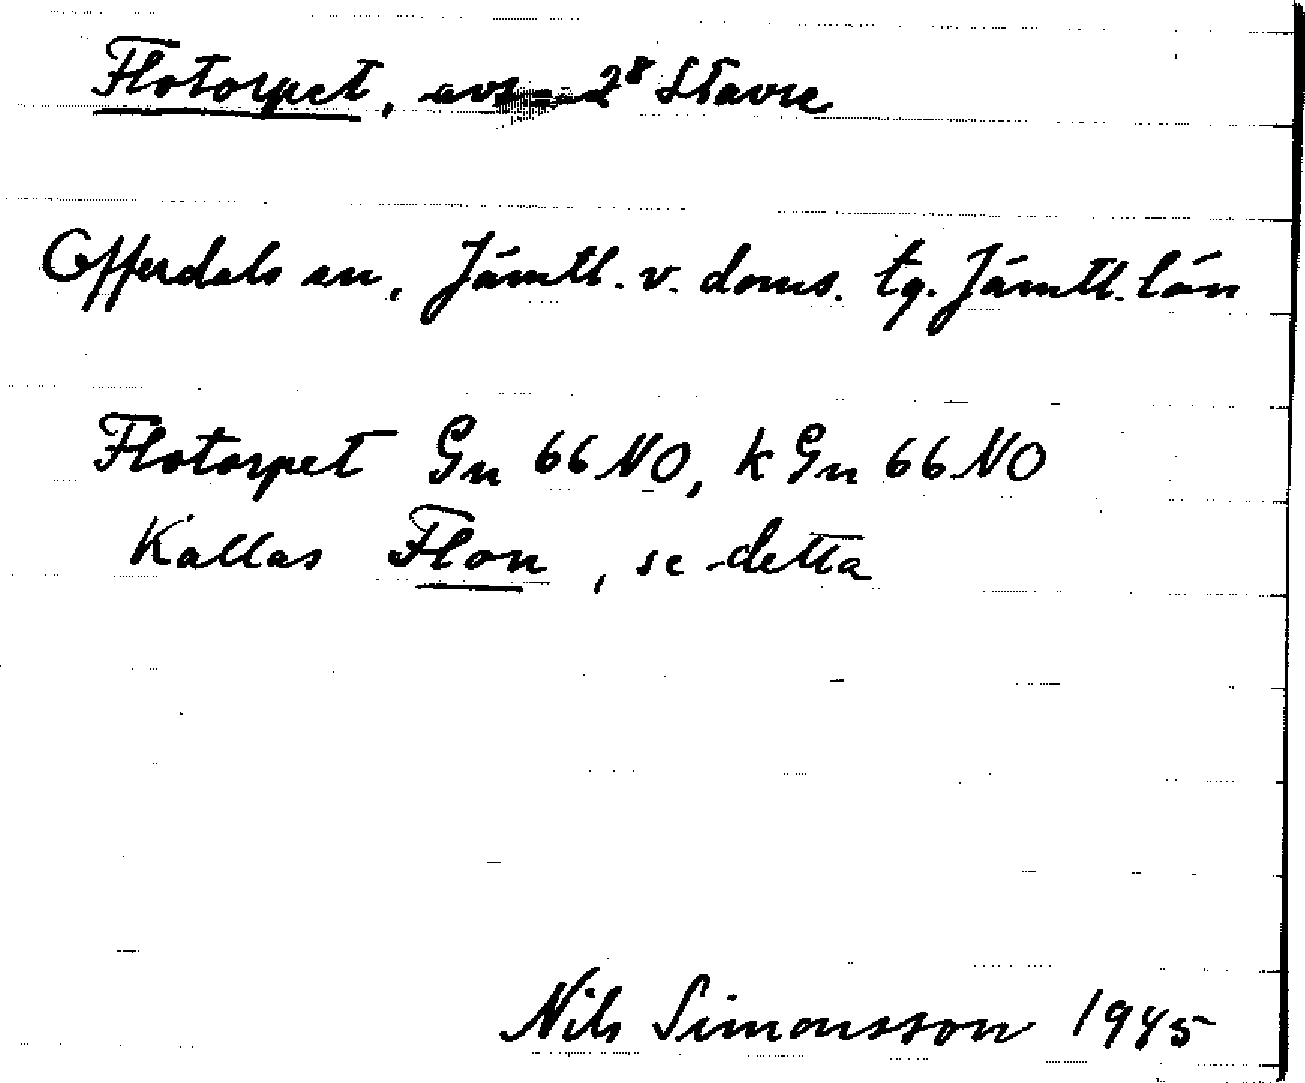 Flotorpet, avs. 2⁸ Stavre
Offerdals sn, Jämtl. v. doms. tg. Jämtl. län
Flotorpet Gn 66 NO, k Gn 66 NO
Kallas Flon, se detta
Nils Simonsson 1945